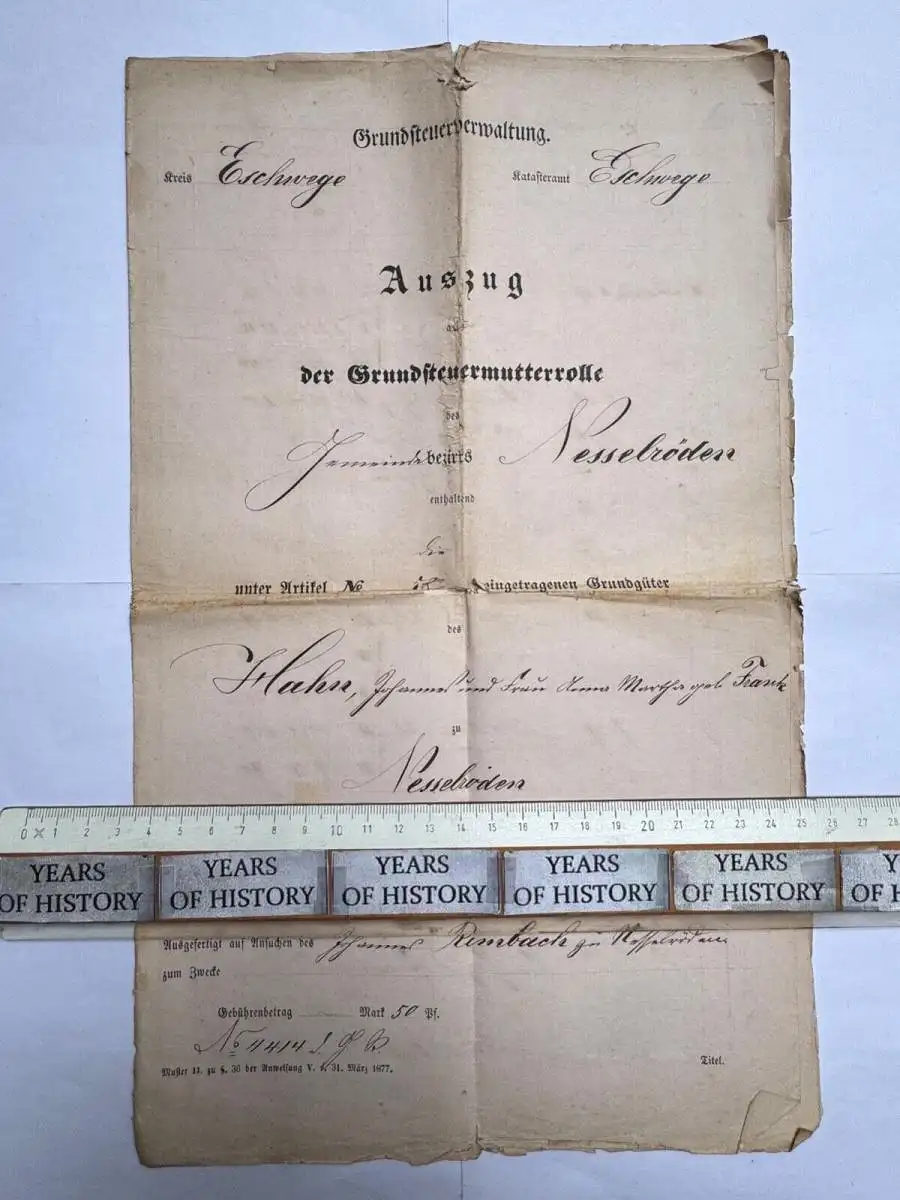 Grundsteuerverwaltung.
Kreis Eschwege Katasteramt Eschwege
Auszug
aus
der Grundsteuermutterrolle
des
Gemeindebezirks Nesselröden
enthaltend
die
unter Artikel No eingetragenen Grundgüter
des
Hahn, Johannes und Frau Anna Martha geb. Frank
zu
Nesselröden
0 1 2 3 4 5 6 7 8 9 10 11 12 13 14 15 16 17 18 19 20 21 22 23 24 25 26 27 28
YEARS YEARS YEARS YEARS YEARS Y
OF HISTORY OF HISTORY OF HISTORY OF HISTORY OF HISTORY OF H
Ausgefertigt auf Ansuchen des Johannes Rimbach zu Nesselröden
zum Zwecke
Gebührenbetrag Mark 50 Pf.
No 4414
Muster 11. zu §. 36 der Anweisung V. v. 31. März 1877.
Titel.